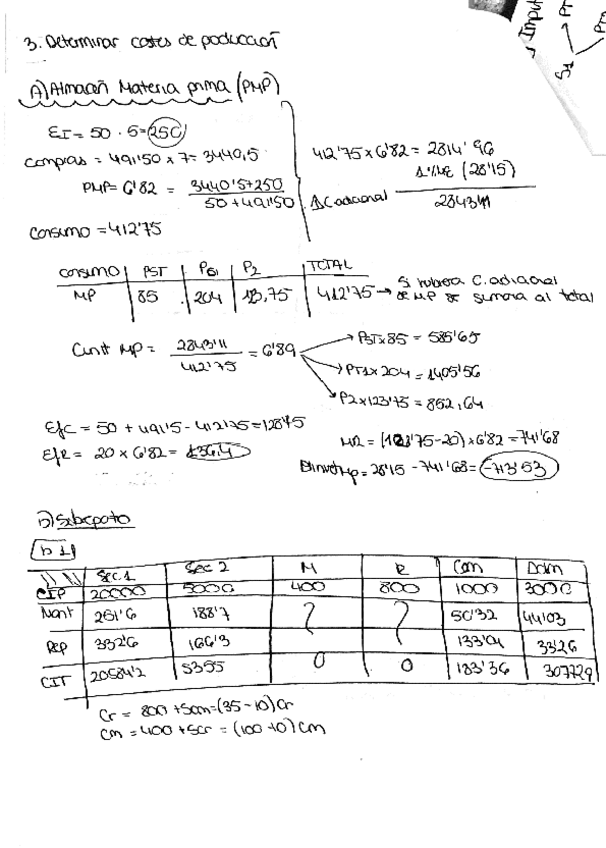 Input
PT
PT1
S1
3. Determinar costes de producción
A) Almacén Materia prima (PMP)
EI = 50 · 5 = 250
compras = 491'50 x 7 = 3440,5
PMP = 6'82 = 3440'5+250 / 50+491'50
consumo = 412'75
412'75 x 6'82 = 2814'96
(28'15)
C adicional 2843'11
consumo | PST | P2 | TOTAL
MP | 85 | 204 | 123,75 | 412'75 → Si hubiera C.adicional de MP se sumaría al total
Cunit MP = 2843'11 / 412'75 = 6'89
PST x 85 = 585'65
PT1 x 204 = 1405'56
P2 x 123'75 = 852,64
EfC = 50 + 491'5 - 412'75 = 128'75
EfR = 20 x 6'82 = 136,4
= (128'75-20) x 6'82 = 741'68
= 28'15 - 741'68 = -713'53
B) Subreparto
b 1)
Sec.1 | Sec 2 | M | R | Com | Adm
CIP | 20000 | 5000 | 400 | 800 | 1000 | 3000
Mant | 251'6 | 188'7 | 50'32
Rep | 332'6 | 166'3 | 133'04 | 332'6
CIT | 20584'2 | 5355 | 0 | 0 | 183'36
Cr = 800 + 5cm = (35-10)Cr
Cm = 400 + 5cr = (100-10)Cm